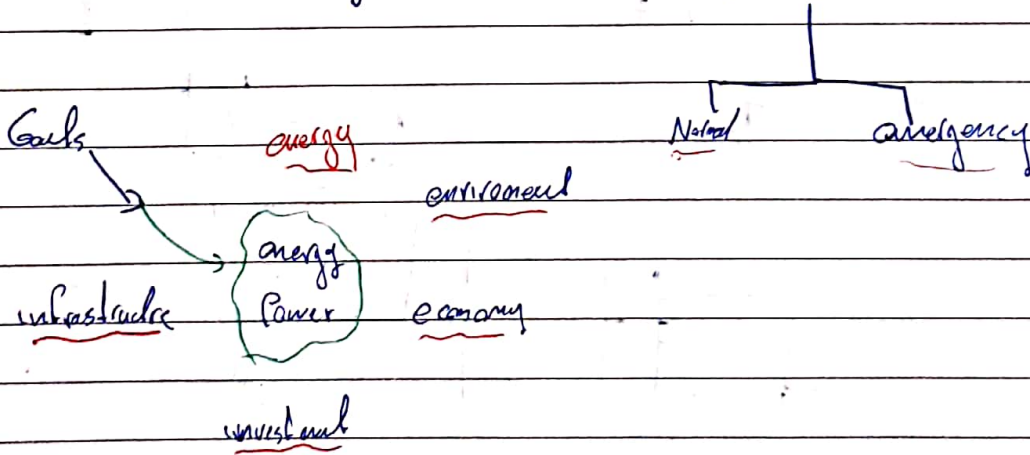 Goals energy Normal emergency
enviroment
energy
infrastructre Power economy
investment